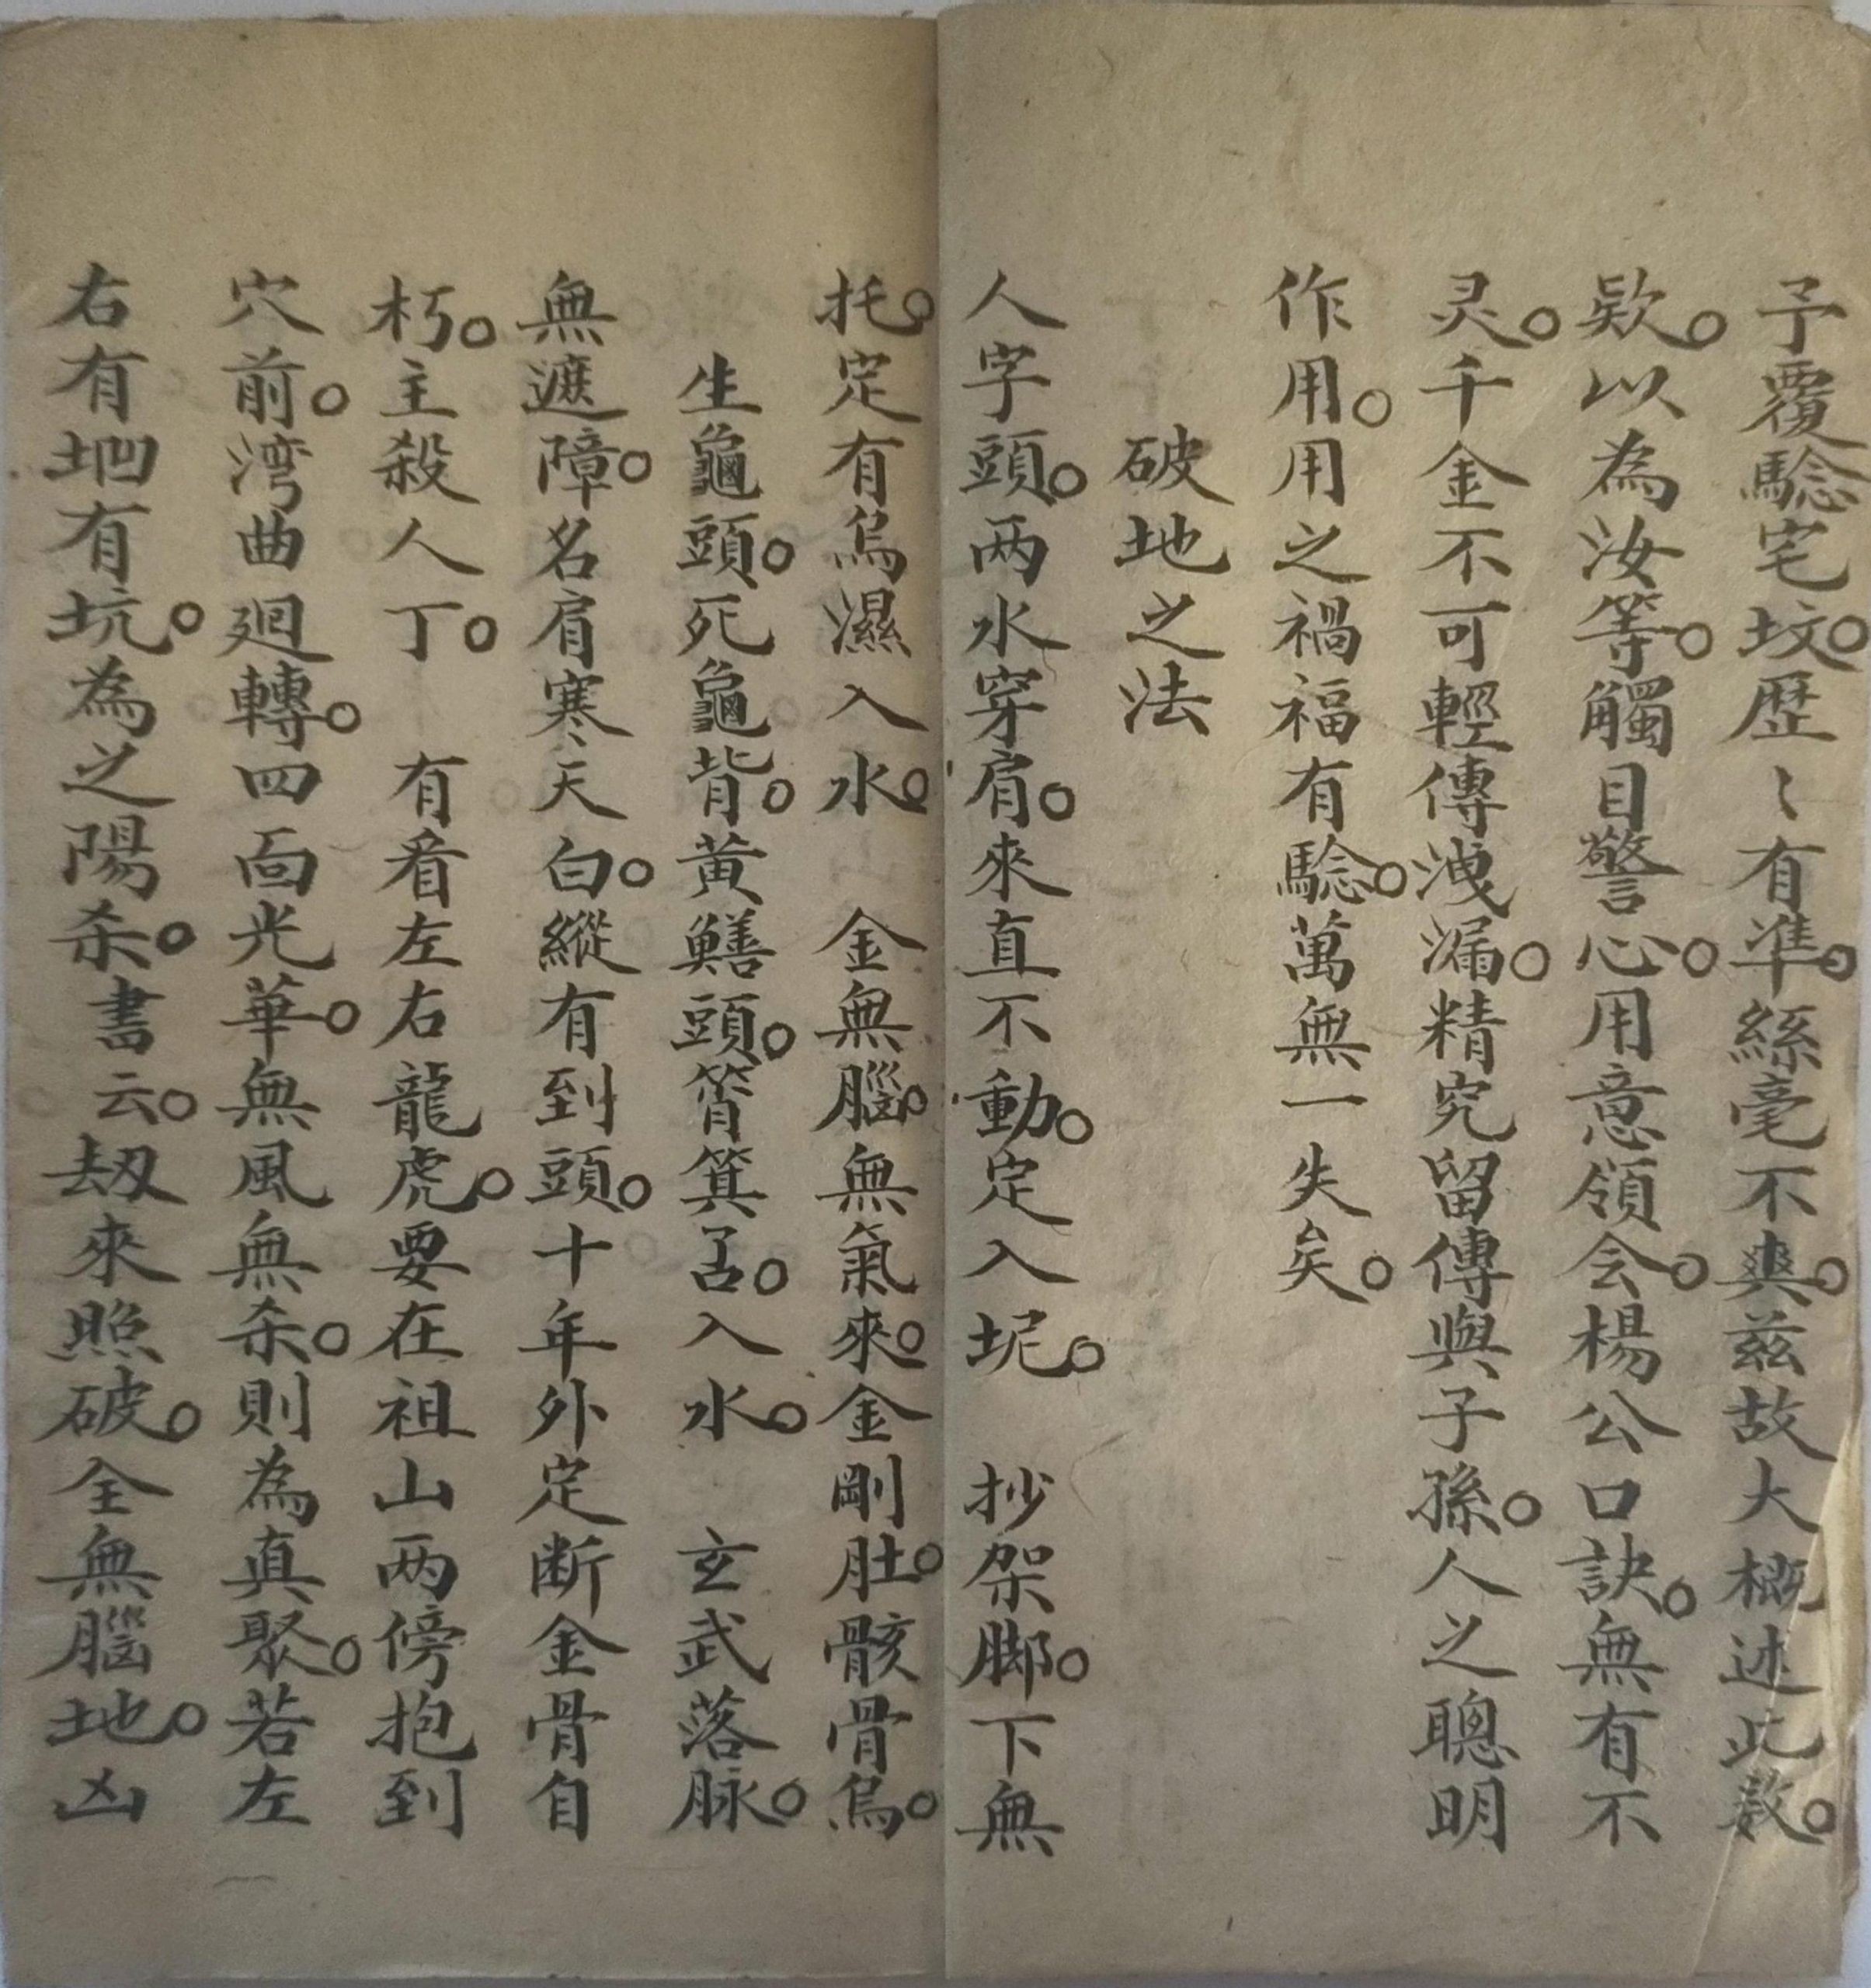 予覆騐宅坟。歴〻有準。絲毫不爽。茲故大概述此数。
欤。以為汝等。觸目警心。用意領会。楊公口訣。無有不
灵。千金不可輕傳洩漏。精究留傳與子孫。人之聰明
作用。用之禍福有騐。萬無一失矣。
破地之法
人字頭。两水穿肩。來直不動。定入坭。 抄架脚。下無
托。定有烏濕入水。 金無腦。無氣來。金剛肚。骸骨烏。
生龜頭。死龜背。黄鱔頭。筲箕舌。入水。 玄武落脉。
無遮障。名肩寒天白。縱有到頭。十年外定断金骨自
朽。主殺人丁。 有看左右龍虎。要在祖山两傍抱到
穴前。湾曲廻轉。四面光華。無風無杀。則為真聚。若左
右有坳有坑。為之陽杀。書云。刼來照破。全無腦地。凶